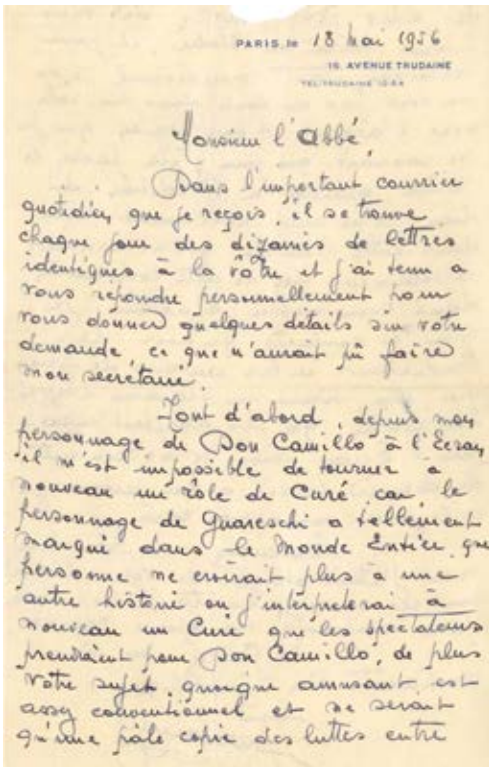 PARIS, le 18 Mai 1956
16, AVENUE TRUDAINE
TEL. TRUDAINE
Monsieur l'Abbé,
Dans l'important courrier
quotidien, que je reçois, il se trouve
chaque jour des dizaines de lettres
identiques à la vôtre et j'ai tenu a
vous répondre personnellement pour
vous donner quelques détails sur votre
demande, ce que n'aurait pû faire
mon secrétaire.
Tout d'abord, depuis mon
personnage de Don Camillo à l'Ecran,
il m'est impossible de tourner a
nouveau un rôle de Curé, car le
personnage de Guareschi a tellement
marqué dans le Monde Entier, que
personne ne croirait plus à une
autre histoire ou j'interpreterai à
nouveau un Curé que les spectateurs
prendraient pour Don Camillo, de plus
votre sujet, quoique amusant est
assez conventionnel et ne serait
qu'une pâle copie des luttes entre